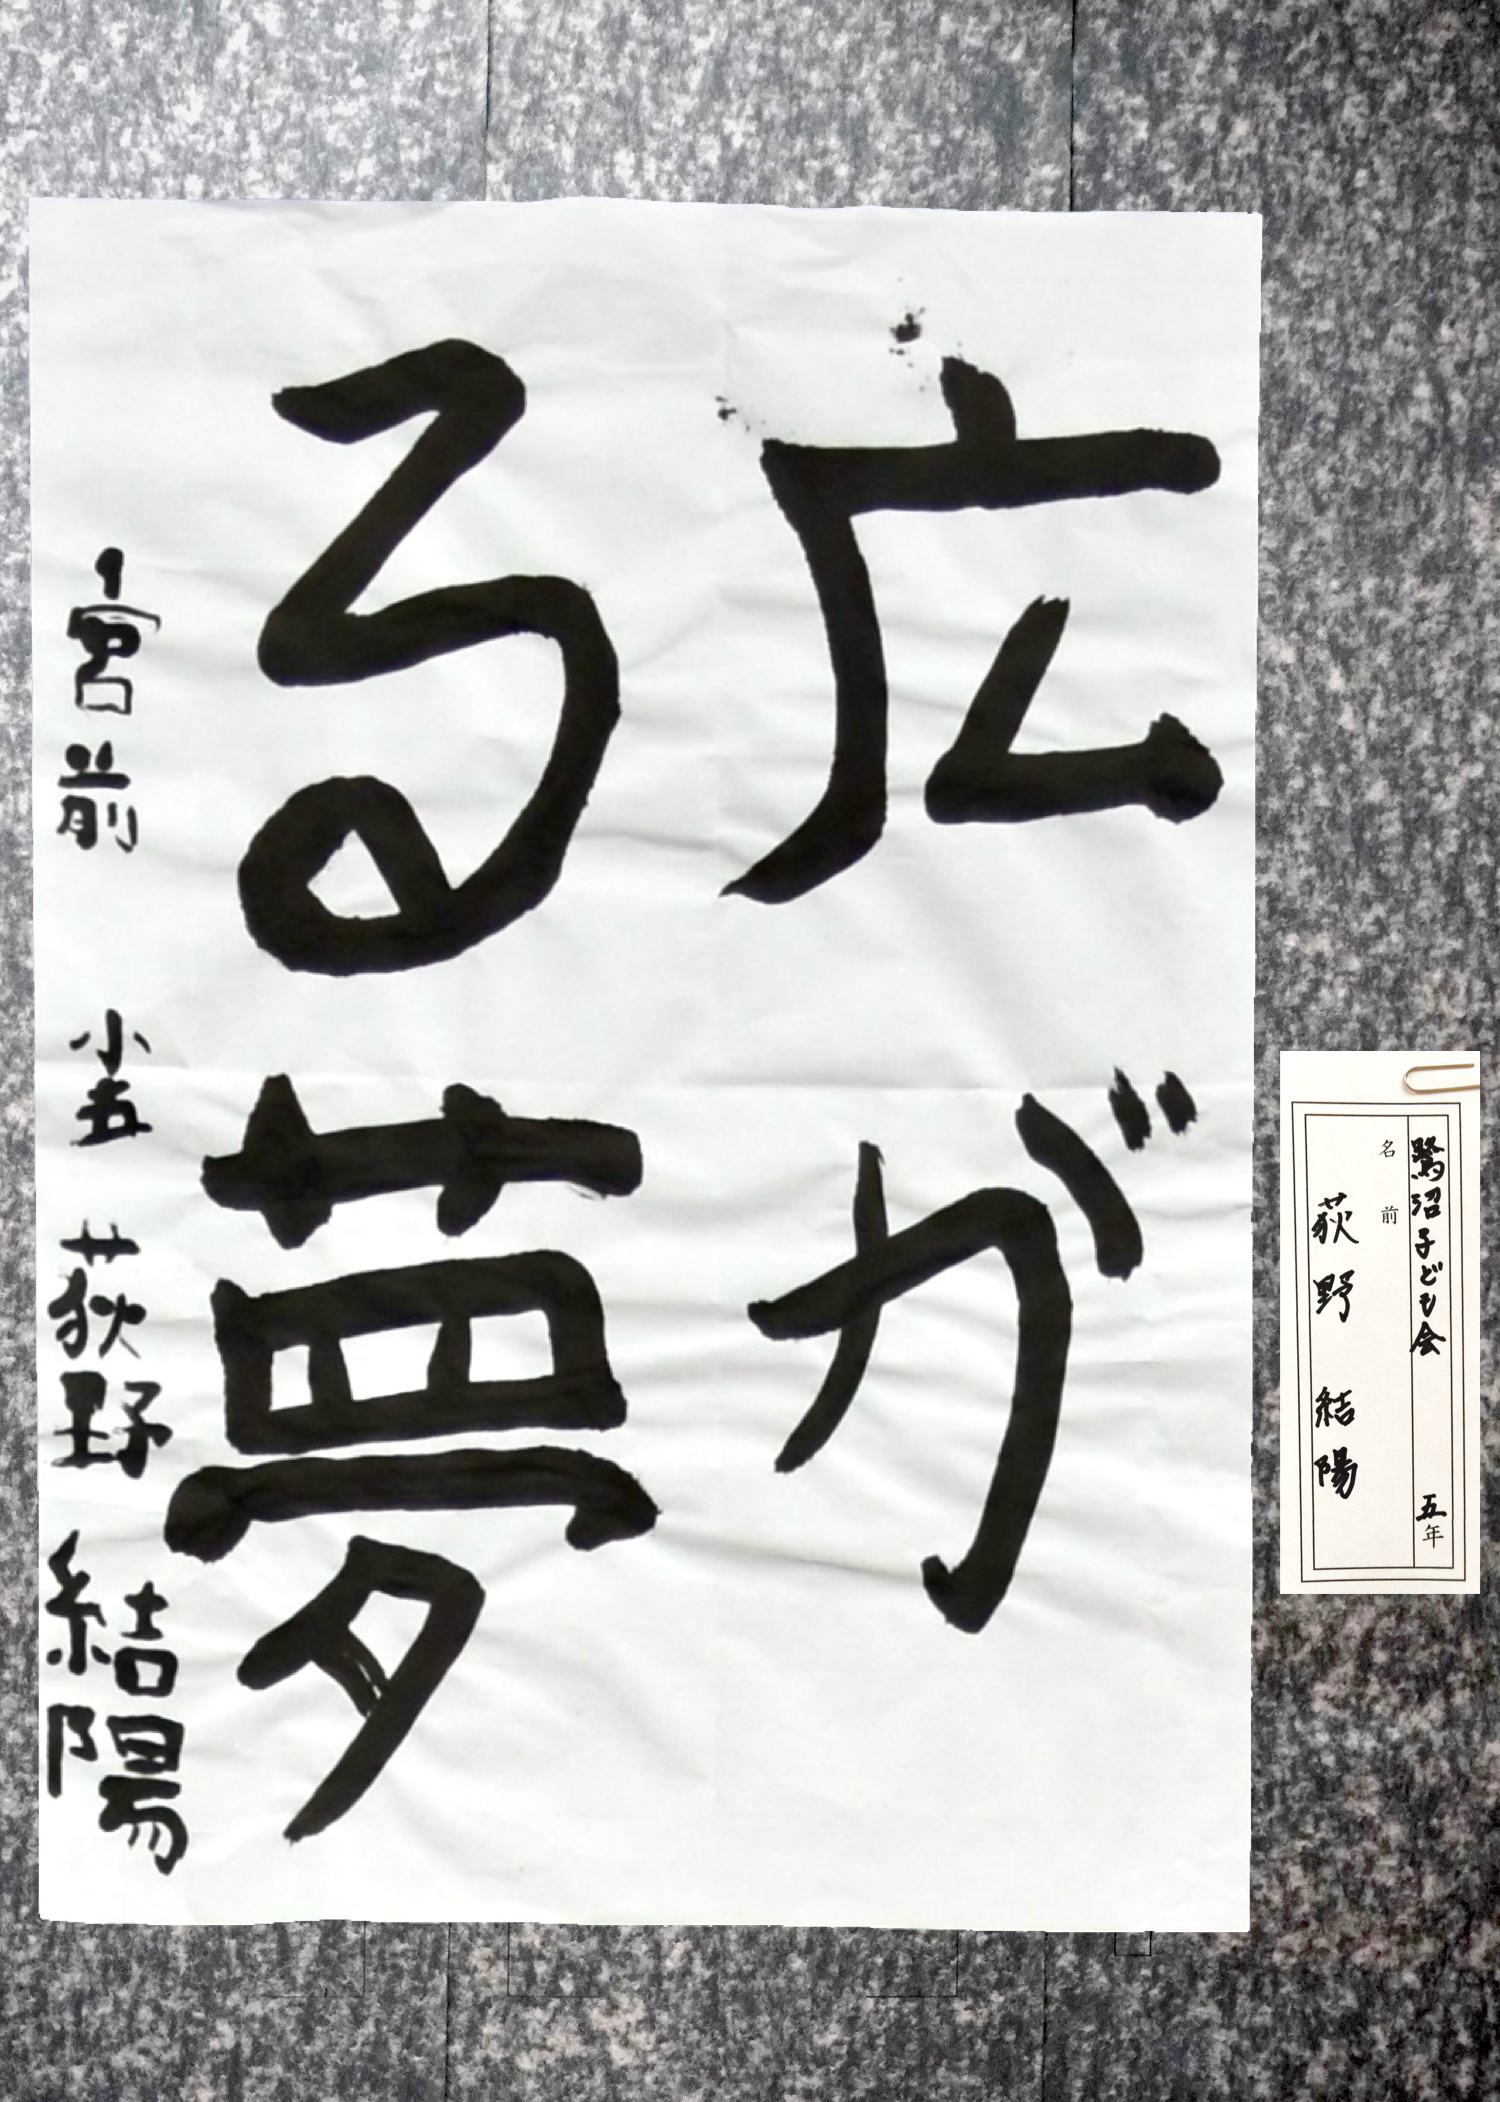 広が
る夢
宮前小五 荻野結陽
鷺沼子ども会 五年
名前
荻野 結陽